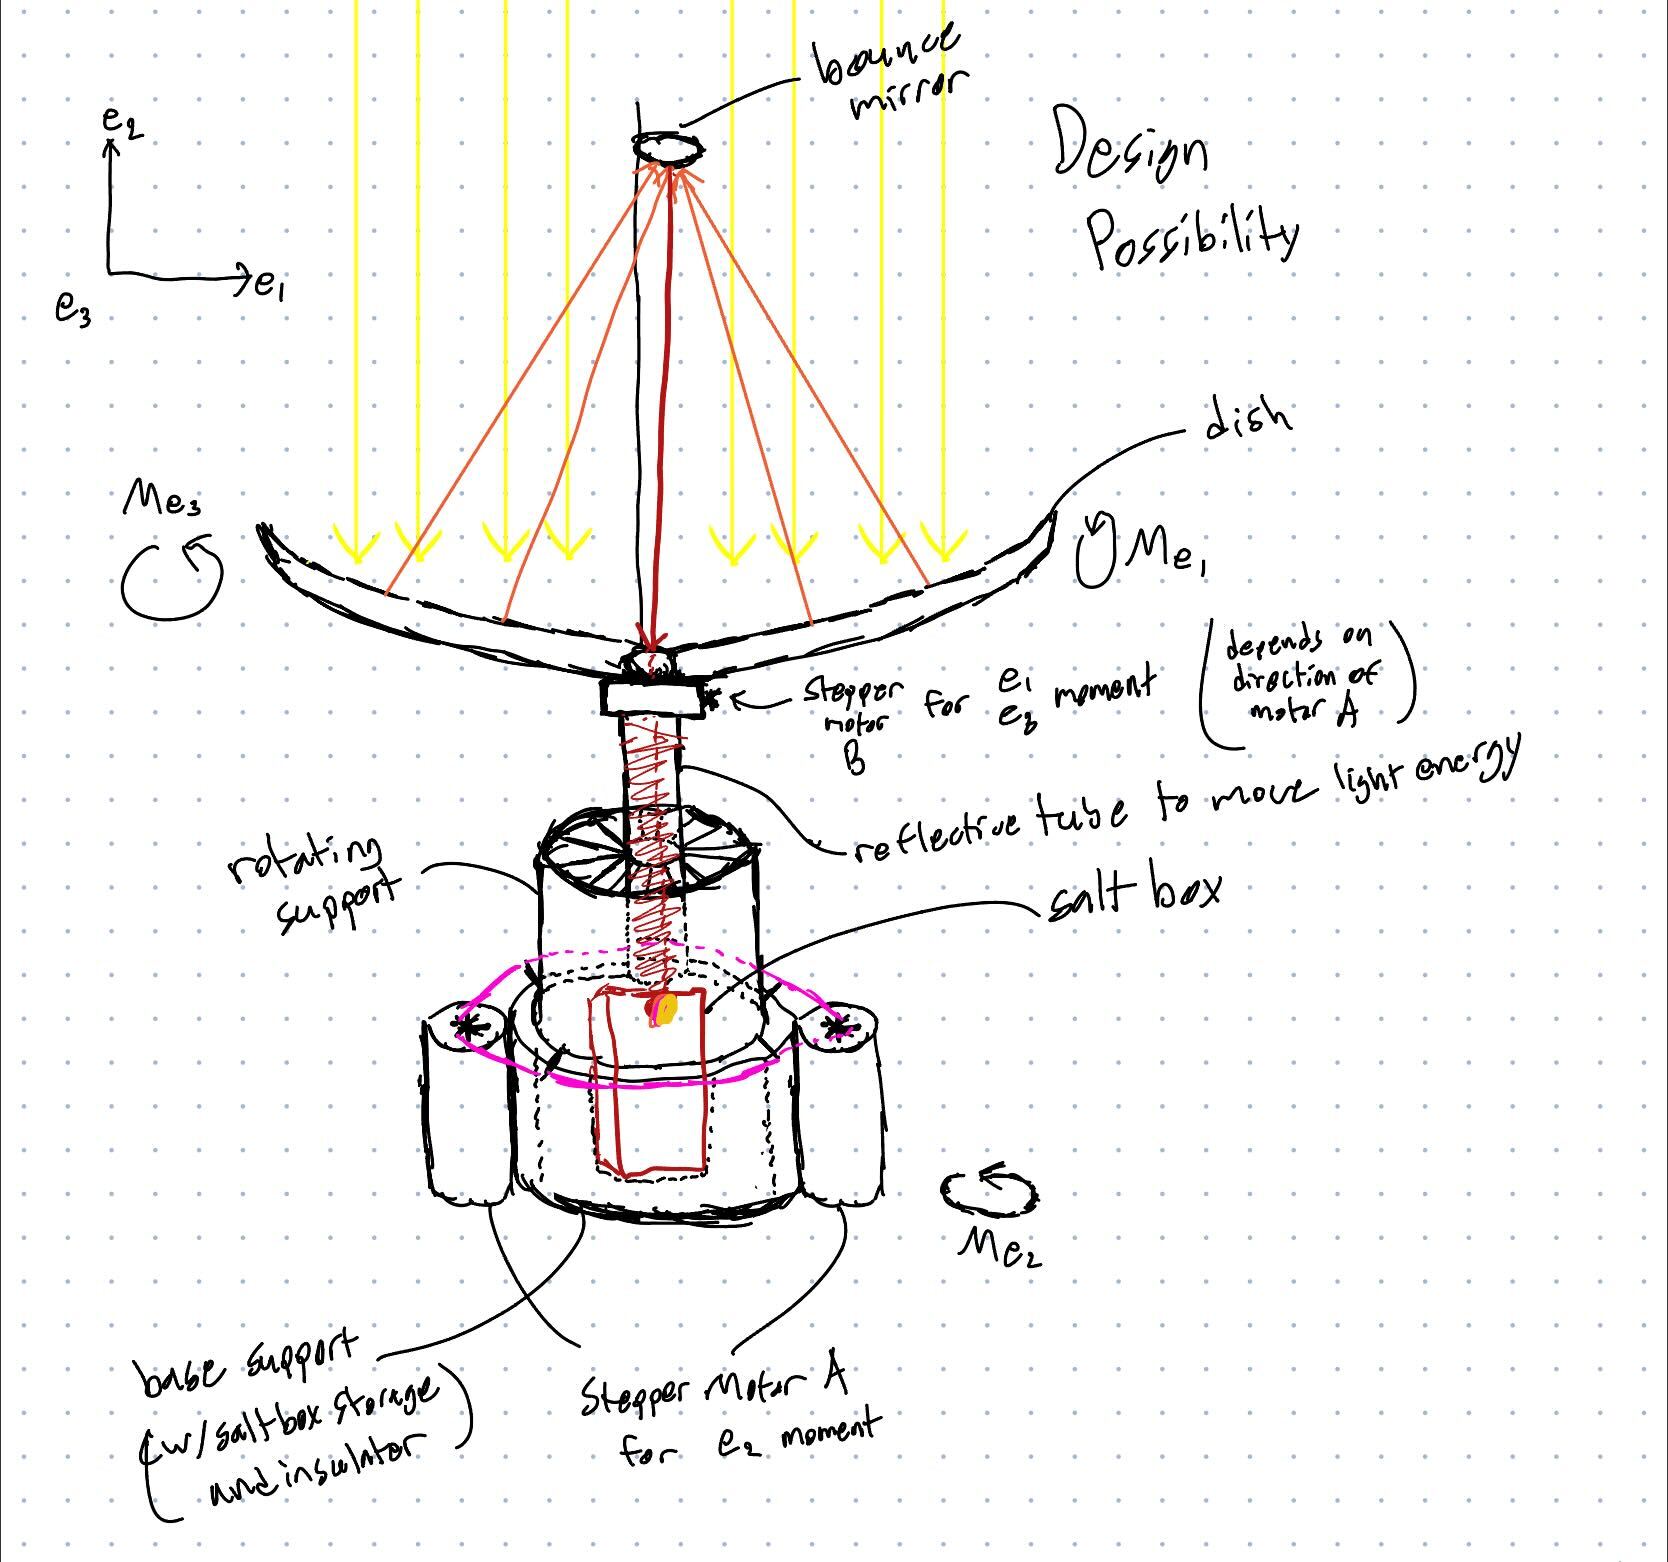 bounce
mirror
Design
Possibility
e2
e1
e3
dish
Me3
Me1
stepper
motor
B
for
e1
e3
moment
(depends on
direction of
motor A)
reflective tube to move light energy
rotating
support
salt box
Me2
base support
(w/ saltbox storage
and insulator)
Stepper Motor A
for e2 moment